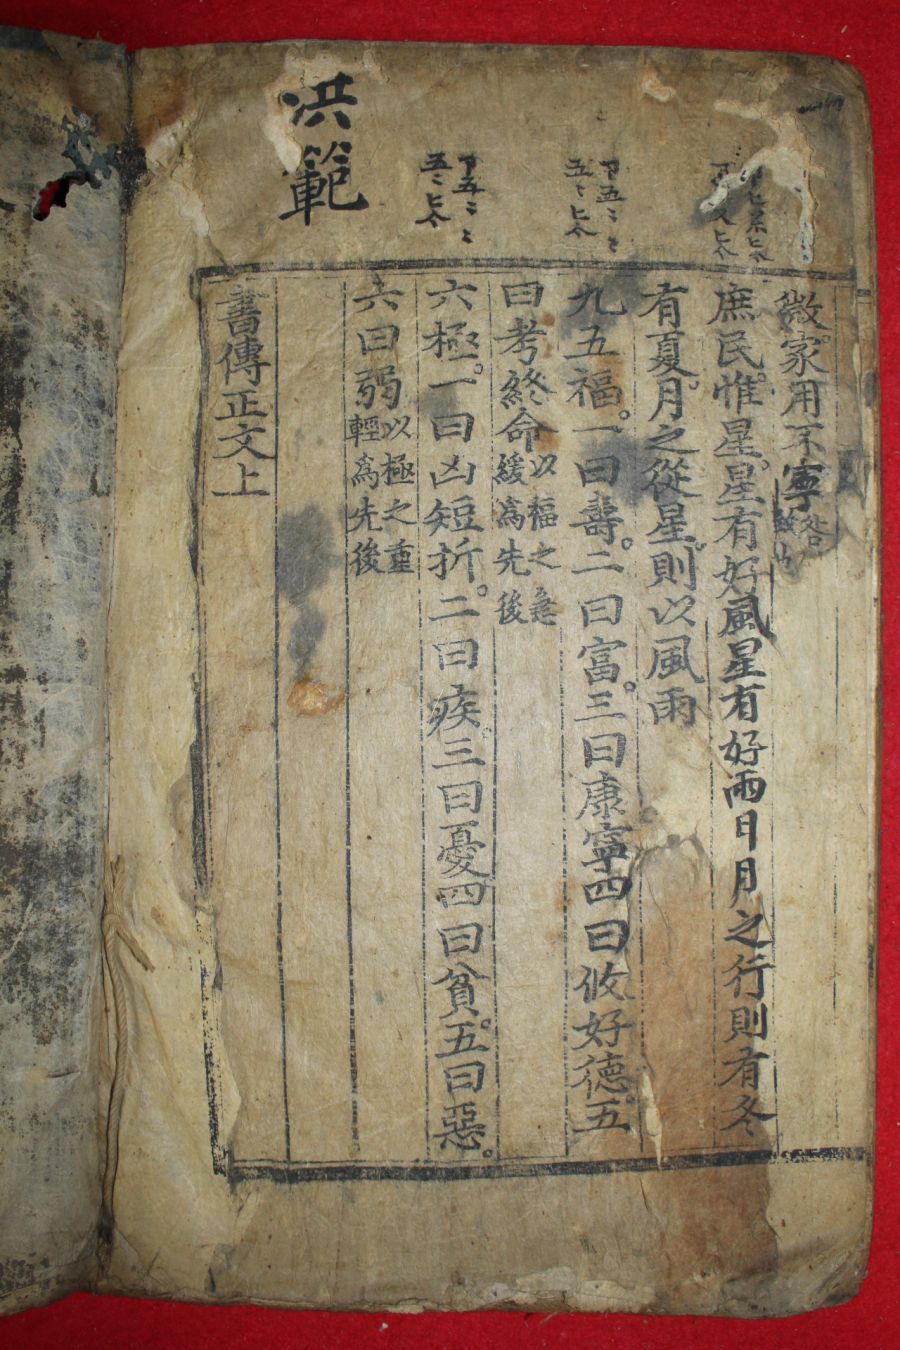 微家用不寧咎
庶民惟星星有好風星有好雨日月之行則有冬
有夏月之從星則以風雨
九五福一曰壽二曰富三曰康寧四曰攸好德五
曰考終命以福之急緩爲先後
六極一曰凶短折二曰疾三曰憂四曰貧五曰惡
六曰弱以極之重輕爲先後
書傳正文上
洪範